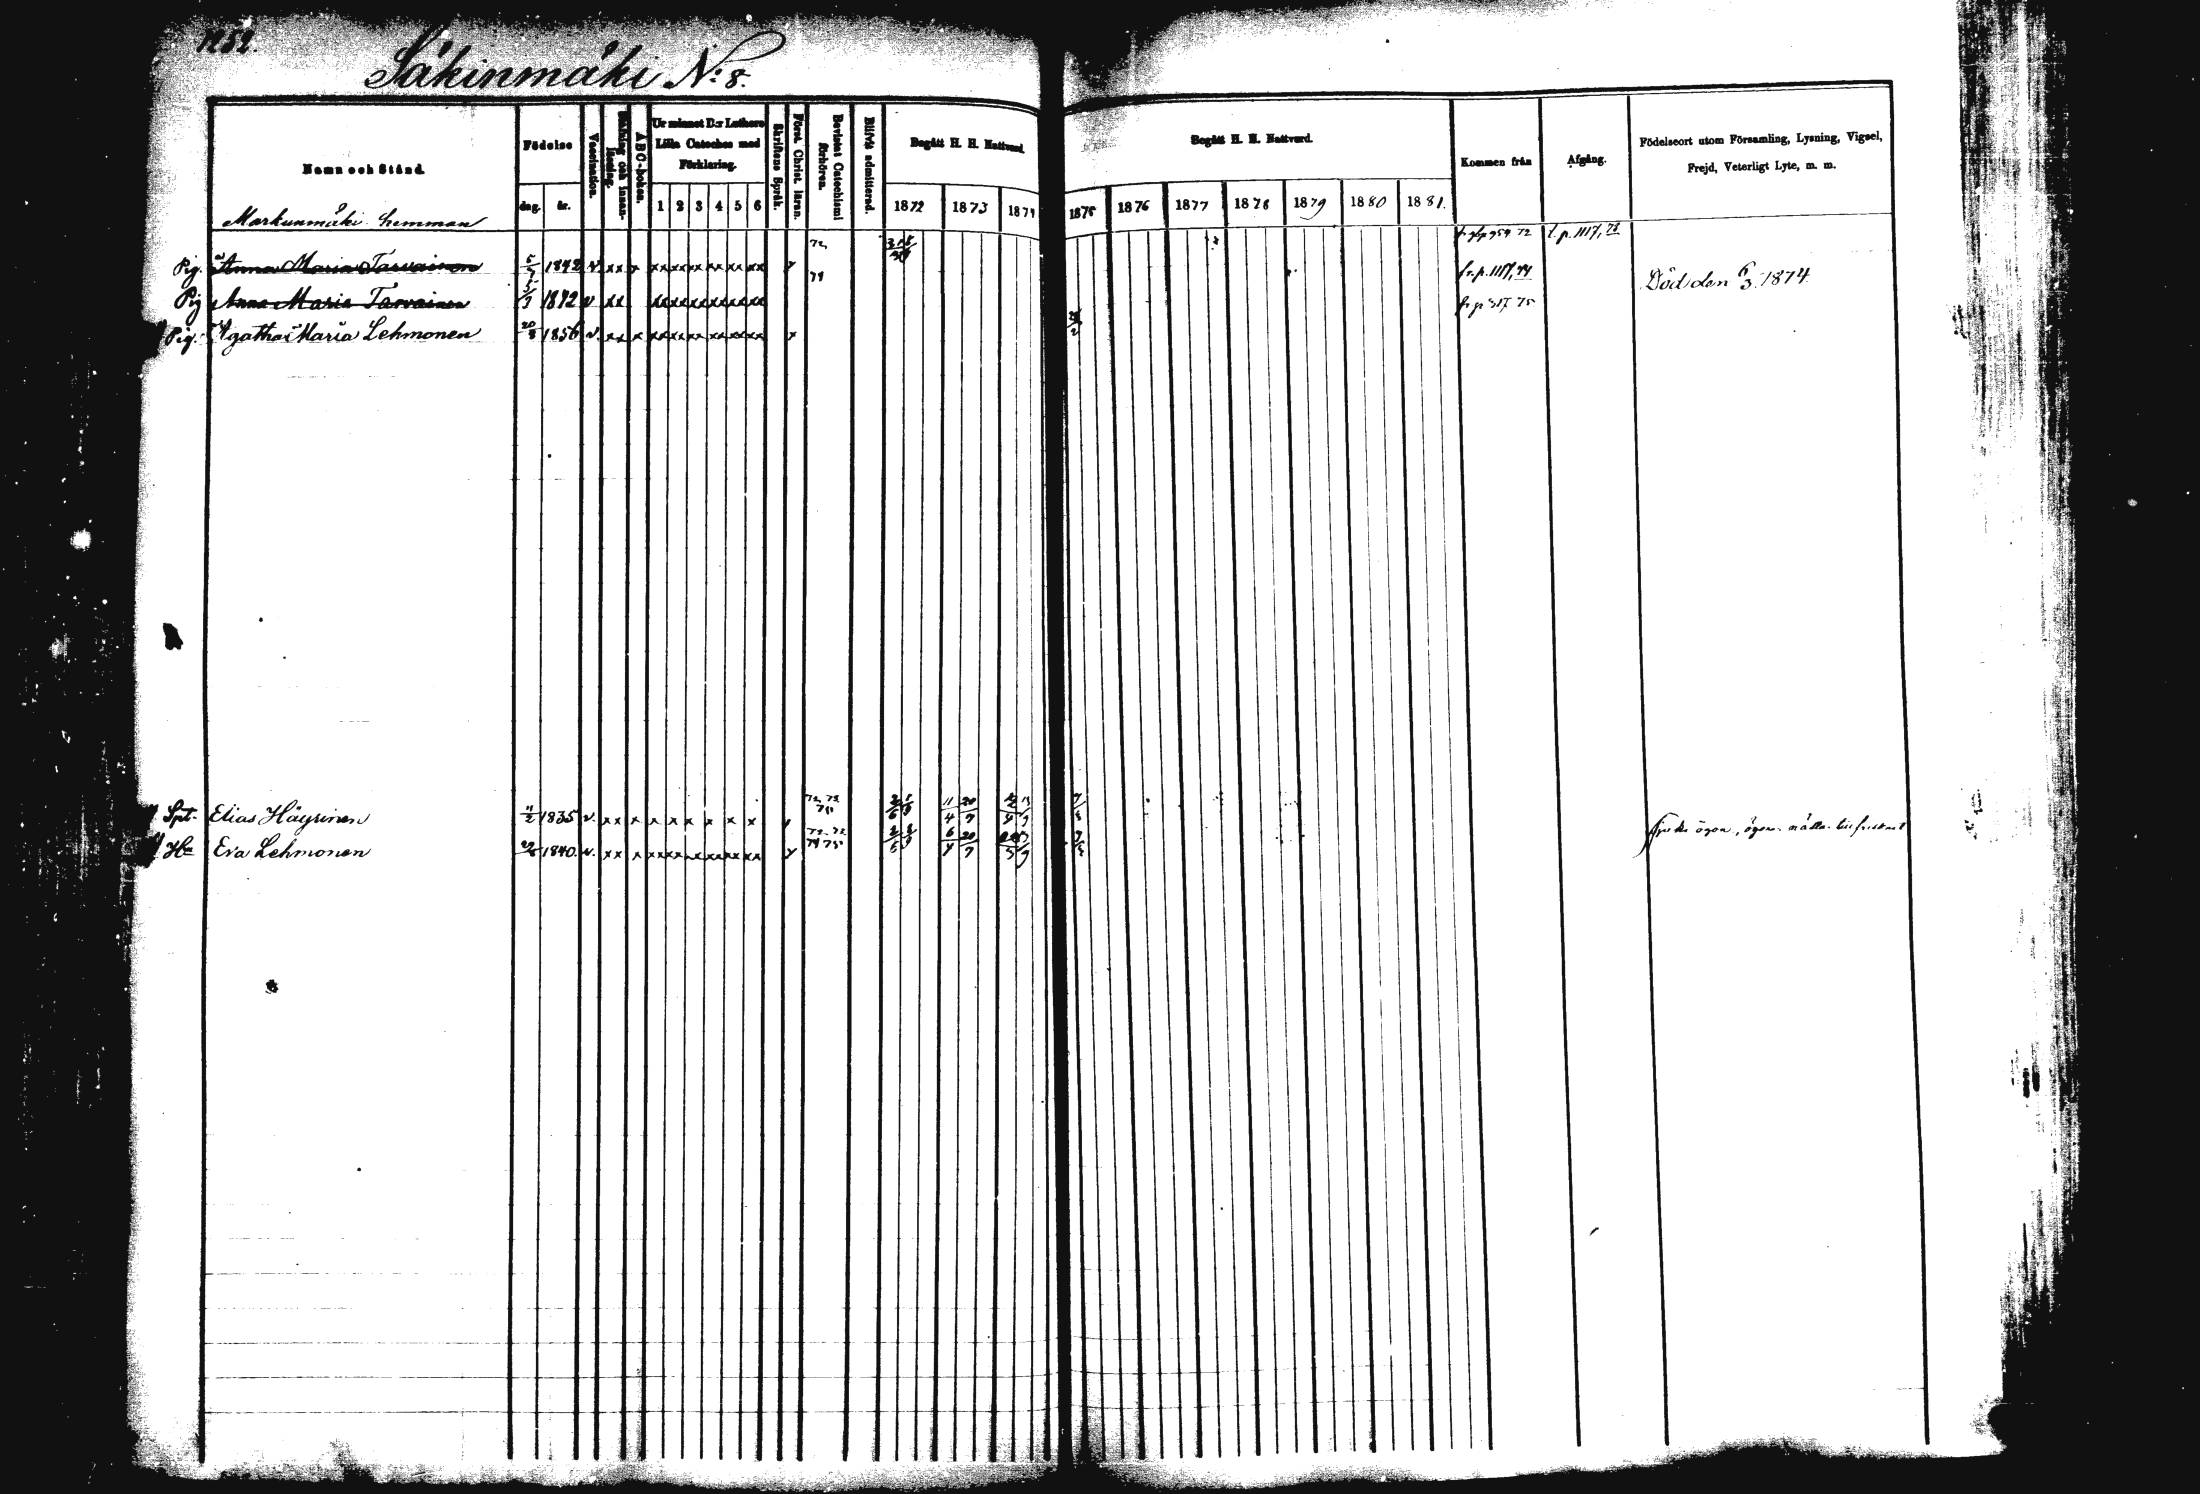 1252.
Säkinmäki N:o 8.
Namn och Stånd.
Födelse
dag. år.
Vaccination.
Stafning och innan-läsning.
ABC-boken.
Ur minnet D:r Luthers Lilla Cateches med Förklaring.
1 2 3 4 5 6
Skriftens Språk.
Först. Christ. läran.
Bevistat Catechismi förhören.
Blifvit admitterad.
Begått H. H. Nattvard.
1872 1873 1874
Begått H. H. Nattvard.
1875 1876 1877 1878 1879 1880 1881.
Kommen från
Afgång.
Födelseort utom Församling, Lysning, Vigsel, Frejd, Veterligt Lyte, m. m.
Markunmäki hemman
Pig. Anna Maria Tarvainen 1842 v xx x xx xx xx xx xx xx 72 t. p. 1117, 73
Pig Anna Maria Tarvainen 5/9 1842 v xx xx xx xx xx xx xx 74 fr. p. 1117, 74 Död den 6/3 1874.
Pig. Agatha Maria Lehmonen 20/8 1856 v. xx x xx xx xx xx xx xx x fr p 317 75
Spt. Elias Häyrinen 11/2 1835 v. x x x x x x x x x 72 73 11/4 20/7
Hu Eva Lehmonen 1840. v. xx x xx xx xx xx xx xx 72 73 74 75 6/4 20/7